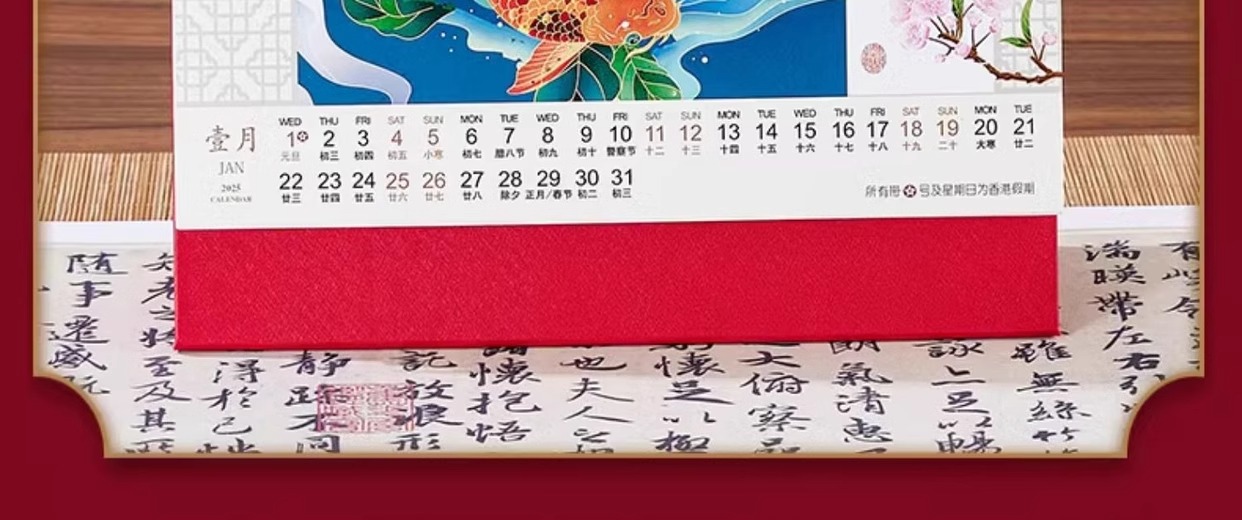 WED THU FRI SAT SUN MON TUE WED THU FRI SAT SUN MON TUE WED THU FRI SAT SUN MON TUE
壹月 1 2 3 4 5 6 7 8 9 10 11 12 13 14 15 16 17 18 19 20 21
元旦 初三 初四 初五 小寒 初七 腊八节 初九 初十 警察节 十二 十三 十四 十五 十六 十七 十八 十九 二十 大寒 廿二
JAN
22 23 24 25 26 27 28 29 30 31
2025
廿三 廿四 廿五 廿六 廿七 廿八 除夕 正月/春节 初二 初三
CALENDAR
所有冊 号及星期日为香港假期
有
湍暎帶左右
雖無絲竹
詠
氣清惠
大俯察
懷足以極
也夫人
懷抱悟
記
静
得於己
至及其
随事遷感